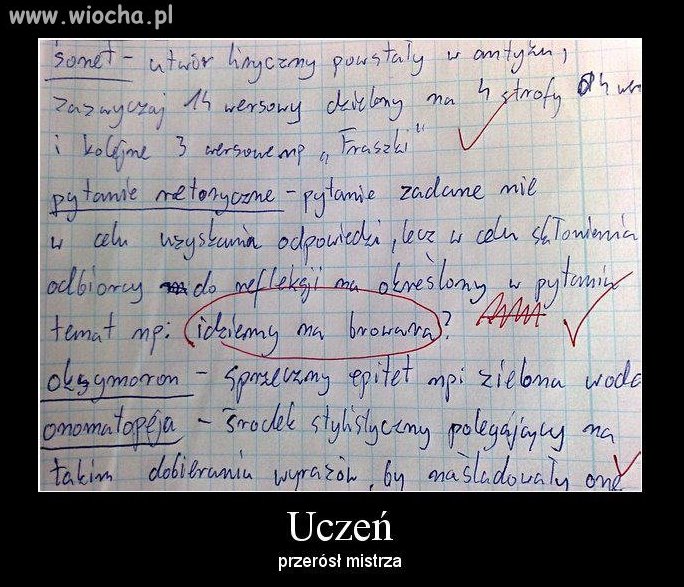 www.wiocha.pl
sonet - utwór liryczny powstały w antyku,
zazwyczaj 14 wersowy dzielony na 4 strofy 4 we
i kolejne 3 wersowe np „Fraszki"
pytanie retoryczne - pytanie zadane nie
w celu uzyskania odpowiedzi, lecz w celu skłonienia
odbiorcy do refleksji na określony w pytaniu
temat np: idziemy na browara?
oksymoron - sprzeczny epitet np: zielona woda
onomatopeja - środek stylistyczny polegający na
takim dobieraniu wyrazów, by naśladowały one
Uczeń
przerósł mistrza